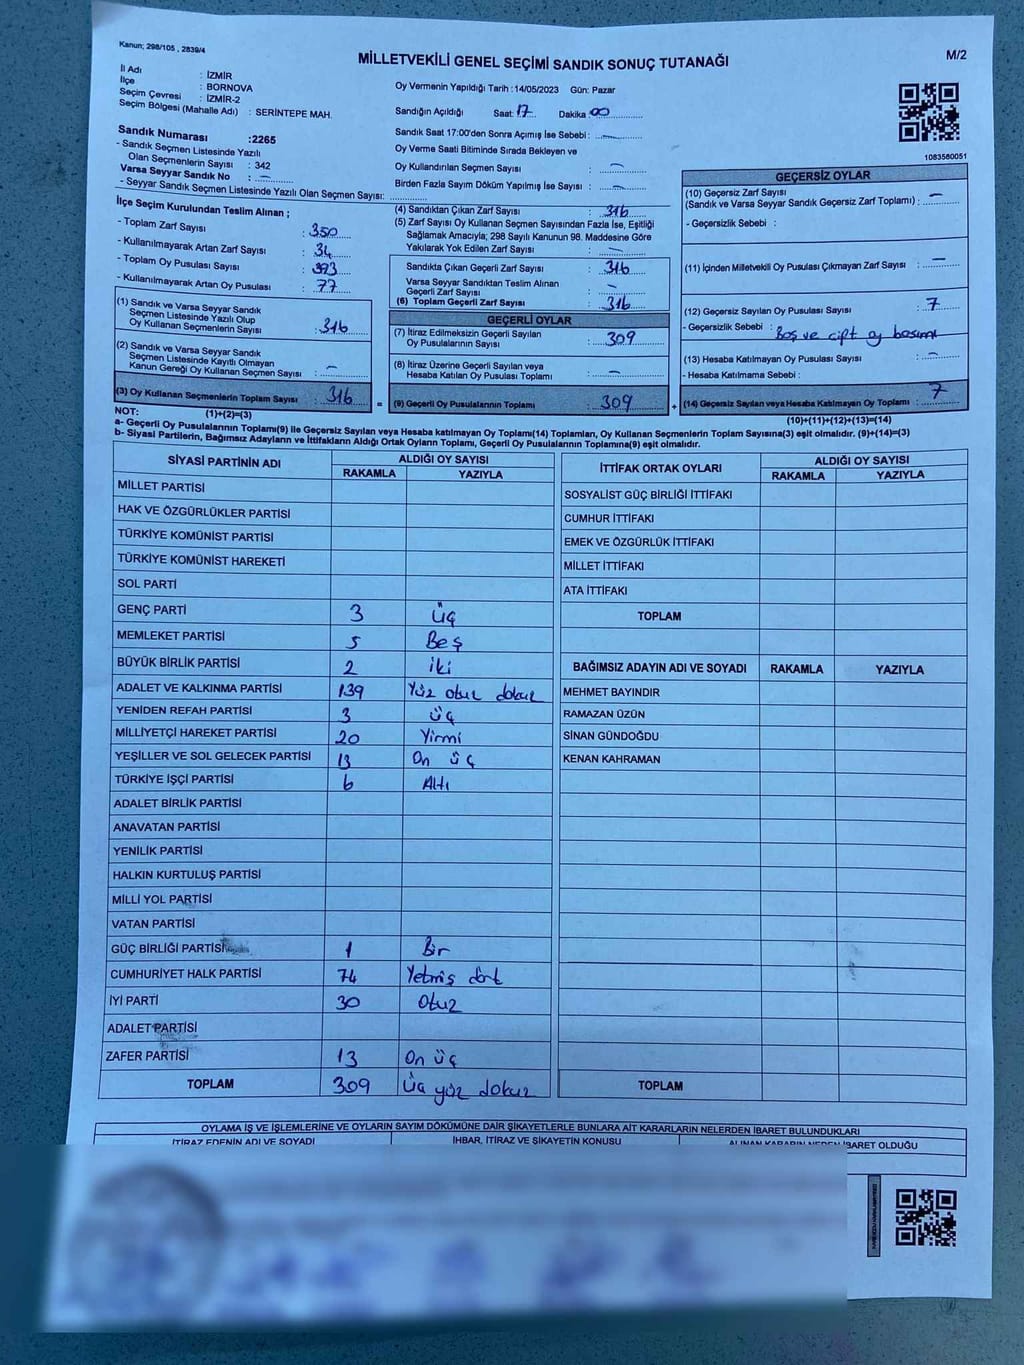 Kanun; 298/105 , 2839/4
MİLLETVEKİLİ GENEL SEÇİMİ SANDIK SONUÇ TUTANAĞI
M/2
İl Adı : İZMİR
İlçe : BORNOVA
Seçim Çevresi : İZMİR-2
Seçim Bölgesi (Mahalle Adı) : SERİNTEPE MAH.
Sandık Numarası :2265
- Sandık Seçmen Listesinde Yazılı
Olan Seçmenlerin Sayısı : 342
Varsa Seyyar Sandık No : —
- Seyyar Sandık Seçmen Listesinde Yazılı Olan Seçmen Sayısı:
Oy Vermenin Yapıldığı Tarih :14/05/2023 Gün: Pazar
Sandığın Açıldığı Saat: 17 Dakika: 00
Sandık Saat 17:00'den Sonra Açımış İse Sebebi : —
Oy Verme Saati Bitiminde Sırada Bekleyen ve
Oy Kullandırılan Seçmen Sayısı : —
Birden Fazla Sayım Döküm Yapılmış İse Sayısı : —
1083580051
İlçe Seçim Kurulundan Teslim Alınan ;
- Toplam Zarf Sayısı : 350
- Kullanılmayarak Artan Zarf Sayısı : 34
- Toplam Oy Pusulası Sayısı : 393
- Kullanılmayarak Artan Oy Pusulası : 77
(1) Sandık ve Varsa Seyyar Sandık
Seçmen Listesinde Yazılı Olup
Oy Kullanan Seçmenlerin Sayısı : 316
(2) Sandık ve Varsa Seyyar Sandık
Seçmen Listesinde Kayıtlı Olmayan
Kanun Gereği Oy Kullanan Seçmen Sayısı : —
(3) Oy Kullanan Seçmenlerin Toplam Sayısı : 316 =
(4) Sandıktan Çıkan Zarf Sayısı : 316
(5) Zarf Sayısı Oy Kullanan Seçmen Sayısından Fazla İse, Eşitliği
Sağlamak Amacıyla; 298 Sayılı Kanunun 98. Maddesine Göre
Yakılarak Yok Edilen Zarf Sayısı : —
Sandıkta Çıkan Geçerli Zarf Sayısı : 316
Varsa Seyyar Sandıktan Teslim Alınan
Geçerli Zarf Sayısı : —
(6) Toplam Geçerli Zarf Sayısı : 316
GEÇERLİ OYLAR
(7) İtiraz Edilmeksizin Geçerli Sayılan
Oy Pusulalarının Sayısı : 309
(8) İtiraz Üzerine Geçerli Sayılan veya
Hesaba Katılan Oy Pusulası Toplamı : —
(9) Geçerli Oy Pusulalarının Toplamı : 309 +
GEÇERSİZ OYLAR
(10) Geçersiz Zarf Sayısı
(Sandık ve Varsa Seyyar Sandık Geçersiz Zarf Toplamı) : —
- Geçersizlik Sebebi :
(11) İçinden Milletvekili Oy Pusulası Çıkmayan Zarf Sayısı : —
(12) Geçersiz Sayılan Oy Pusulası Sayısı : 7
- Geçersizlik Sebebi : Boş ve çift oy basımı
(13) Hesaba Katılmayan Oy Pusulası Sayısı : —
- Hesaba Katılmama Sebebi :
(14) Geçersiz Sayılan veya Hesaba Katılmayan Oy Toplamı : 7
NOT: (1)+(2)=(3)
(10)+(11)+(12)+(13)=(14)
a- Geçerli Oy Pusulalarının Toplamı(9) ile Geçersiz Sayılan veya Hesaba Katılmayan Oy Toplamı(14) Toplamları, Oy Kullanan Seçmenlerin Toplam Sayısına(3) eşit olmalıdır. (9)+(14)=(3)
b- Siyasi Partilerin, Bağımsız Adayların ve İttifakların Aldığı Ortak Oyların Toplamı, Geçerli Oy Pusulalarının Toplamına(9) eşit olmalıdır.
SİYASİ PARTİNİN ADI ALDIĞI OY SAYISI
RAKAMLA YAZIYLA
MİLLET PARTİSİ
HAK VE ÖZGÜRLÜKLER PARTİSİ
TÜRKİYE KOMÜNİST PARTİSİ
TÜRKİYE KOMÜNİST HAREKETİ
SOL PARTİ
GENÇ PARTİ 3 Üç
MEMLEKET PARTİSİ 5 Beş
BÜYÜK BİRLİK PARTİSİ 2 iki
ADALET VE KALKINMA PARTİSİ 139 Yüz otuz dokuz
YENİDEN REFAH PARTİSİ 3 üç
MİLLİYETÇİ HAREKET PARTİSİ 20 Yirmi
YEŞİLLER VE SOL GELECEK PARTİSİ 13 On üç
TÜRKİYE İŞÇİ PARTİSİ 6 Altı
ADALET BİRLİK PARTİSİ
ANAVATAN PARTİSİ
YENİLİK PARTİSİ
HALKIN KURTULUŞ PARTİSİ
MİLLİ YOL PARTİSİ
VATAN PARTİSİ
GÜÇ BİRLİĞİ PARTİSİ 1 Bir
CUMHURİYET HALK PARTİSİ 74 Yetmiş dört
İYİ PARTİ 30 Otuz
ADALET PARTİSİ
ZAFER PARTİSİ 13 On üç
TOPLAM 309 Üç yüz dokuz
İTTİFAK ORTAK OYLARI ALDIĞI OY SAYISI
RAKAMLA YAZIYLA
SOSYALİST GÜÇ BİRLİĞİ İTTİFAKI
CUMHUR İTTİFAKI
EMEK VE ÖZGÜRLÜK İTTİFAKI
MİLLET İTTİFAKI
ATA İTTİFAKI
TOPLAM
BAĞIMSIZ ADAYIN ADI VE SOYADI RAKAMLA YAZIYLA
MEHMET BAYINDIR
RAMAZAN ÜZÜN
SİNAN GÜNDOĞDU
KENAN KAHRAMAN
TOPLAM
OYLAMA İŞ VE İŞLEMLERİNE VE OYLARIN SAYIM DÖKÜMÜNE DAİR ŞİKAYETLERLE BUNLARA AİT KARARLARIN NELERDEN İBARET BULUNDUKLARI
İTİRAZ EDENİN ADI VE SOYADI İHBAR, İTİRAZ VE ŞİKAYETİN KONUSU ALINAN KARARIN NEDEN İBARET OLDUĞU